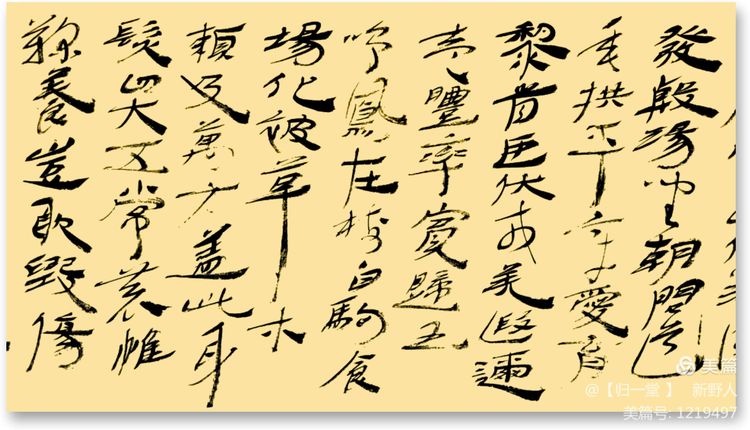 發殷湯坐朝問道
垂拱平章愛育
黎首臣伏戎羌遐邇
壹體率賓歸王
鳴鳳在樹白駒食
場化被草木
賴及萬方蓋此身
髮四大五常恭惟
鞠養豈敢毀傷
美篇
@【归一堂 】 新野人
美篇号: 1219497